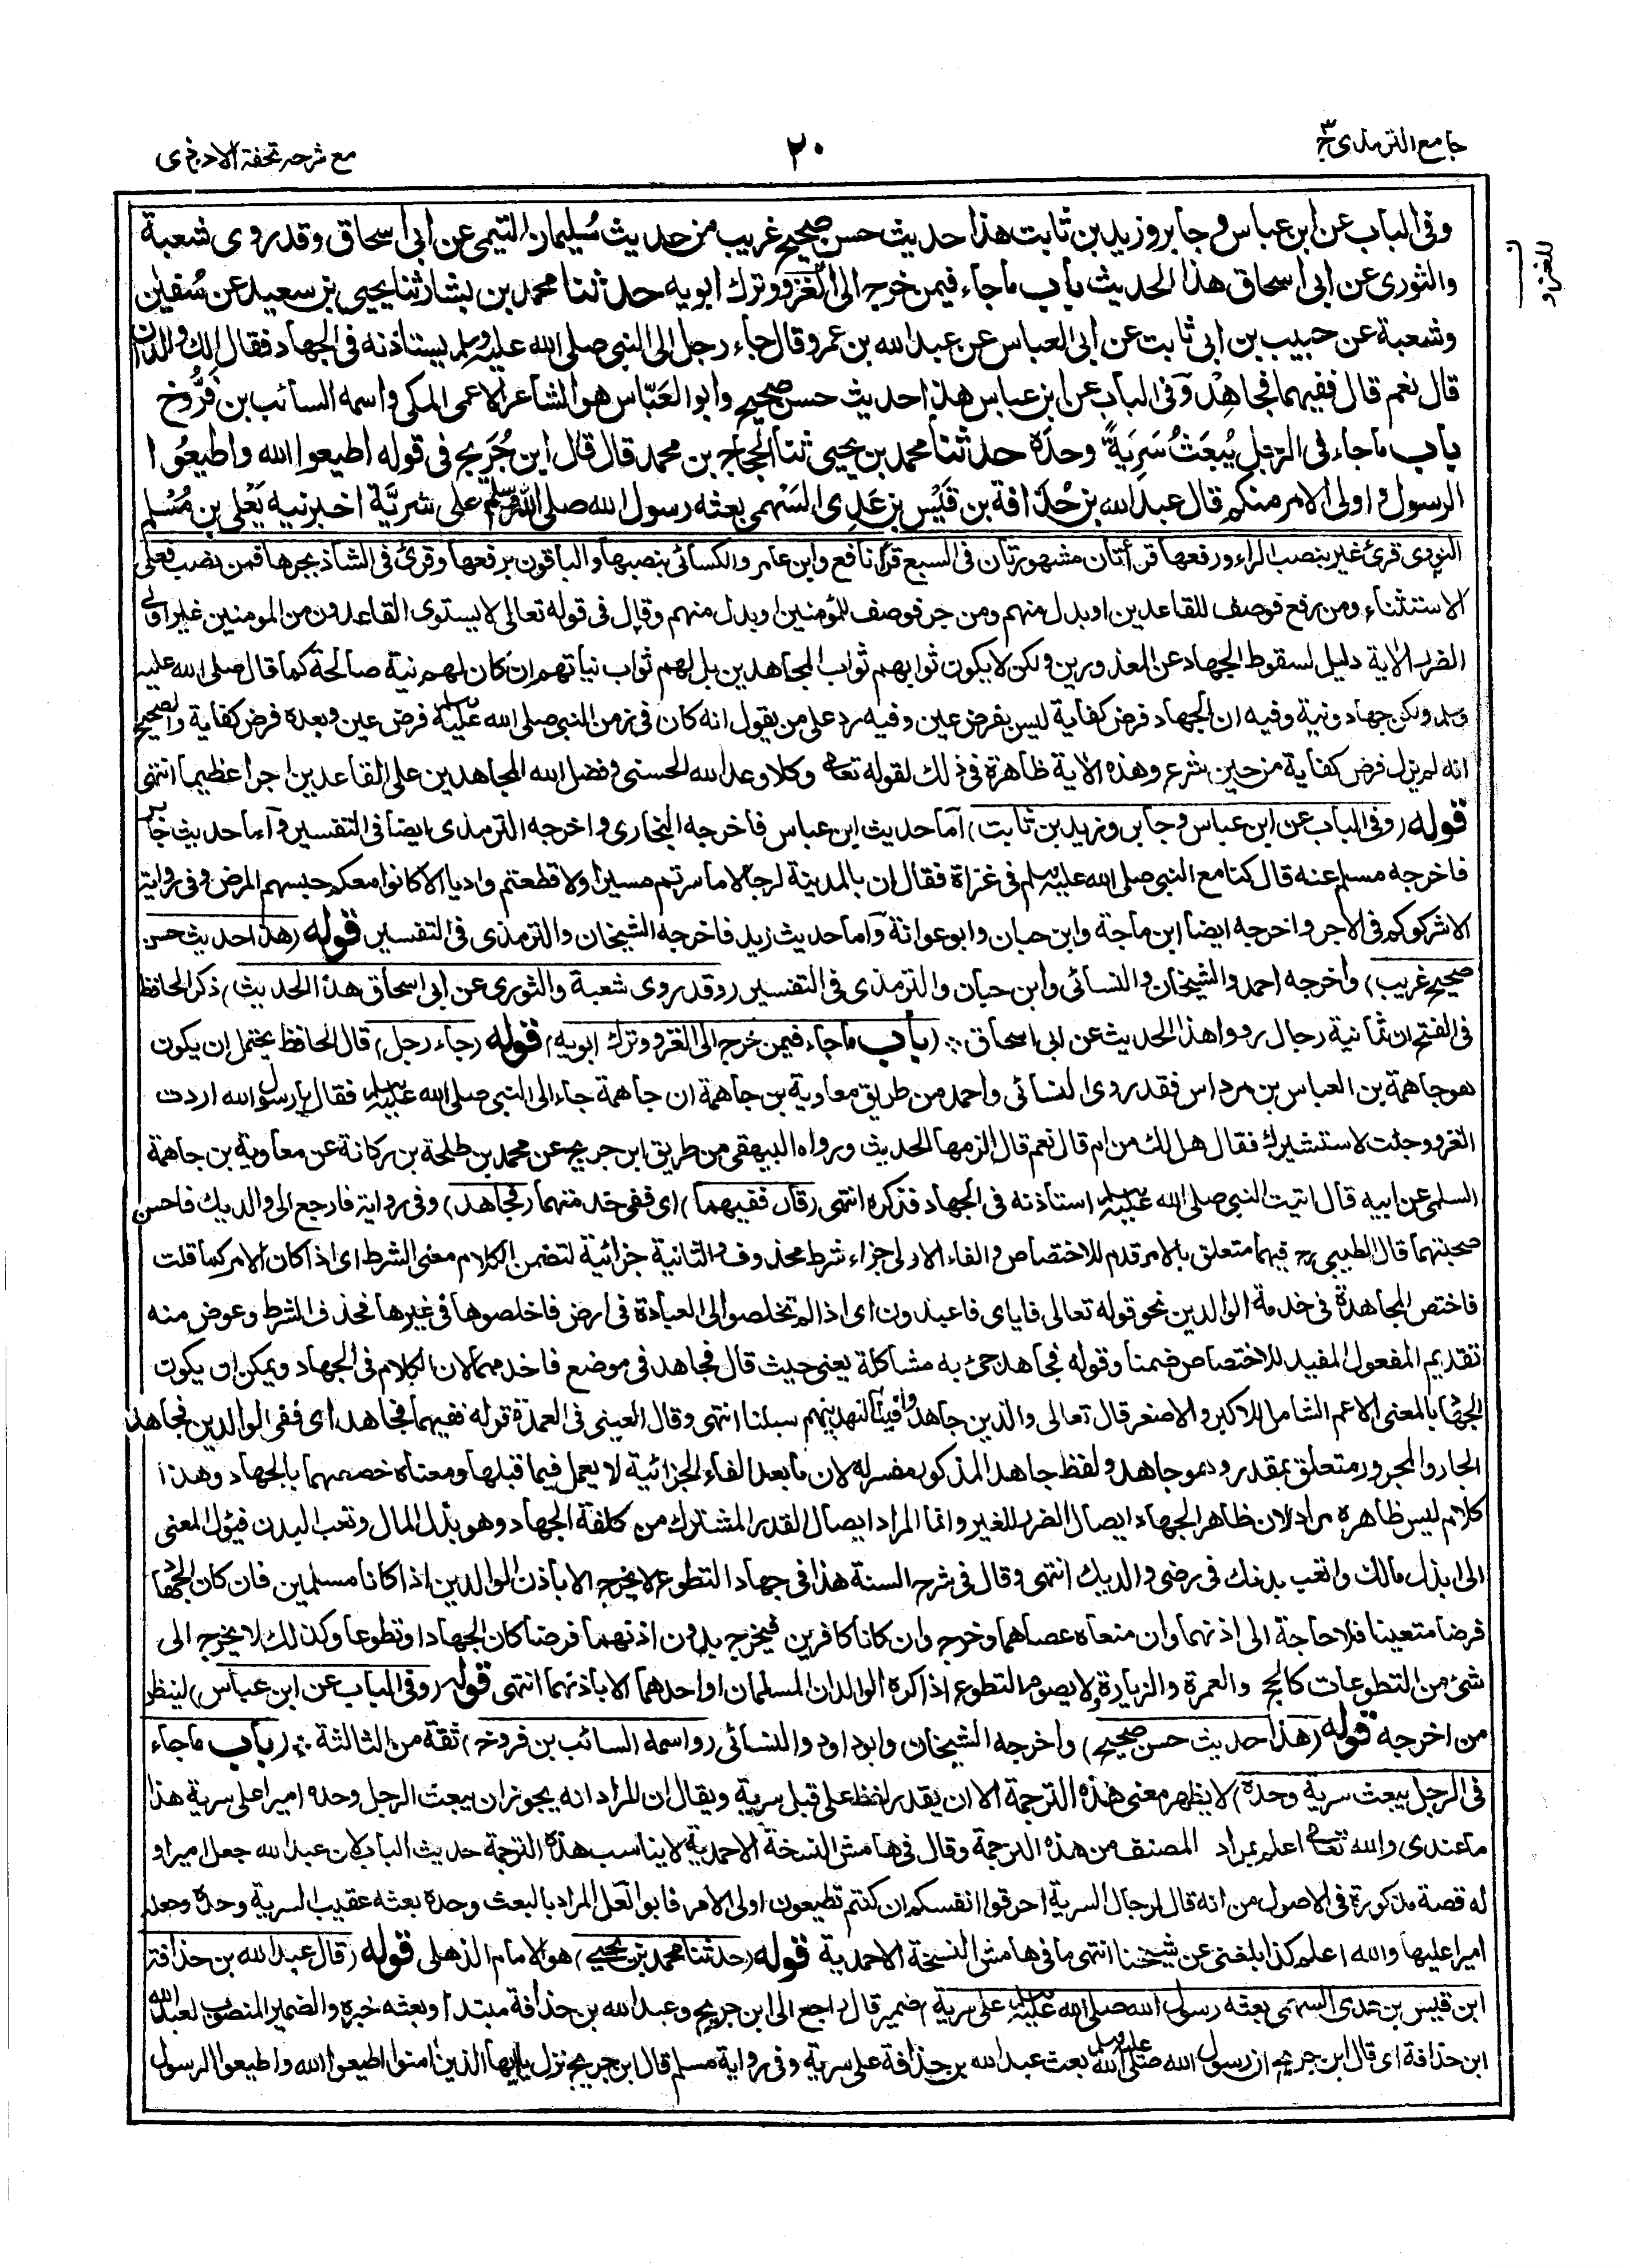 جامع الترمذى ج٣
٢٠
مع شرحه تحفة الاحوذى
وفى الباب عن ابن عباس وجابر وزيد بن ثابت هذا حديث حسن صحيح غريب من حديث سُليمان التيمى عن ابى اسحاق وقد روى شعبة
والثورى عن ابى اسحاق هذا الحديث باب ماجاء فيمن خرج الى الغزو وترك ابويه حدثنا محمد بن بشار ثنا يحيى بن سعيد عن سُفين
وشعبة عن حبيب بن ابى ثابت عن ابى العباس عن عبد الله بن عمرو قال جاء رجل الى النبى صلى الله عليه وسلم يستاذنه فى الجهاد فقال الك والدان
قال نعم قال ففيهما فجاهِدْ وفى الباب عن ابن عباس هذا حديث حسن صحيح وابو العَبّاس هو الشاعر الاعمى المكى واسمه السائب بن فَرُّوخ
باب ماجاء فى الرجل يُبعَثُ سَرِيَةً وحدَه حدثنا محمد بن يحيى ثنا الحجاج بن محمد قال قال ابن جُرَيج فى قوله اطيعوا الله واطيعُوا
الرسول واولى الامر منكم قال عبد الله بن حُذافة بن قَيْس بن عَدِى السَهْمى بعثه رسول الله صلى الله عليه وسلم على سَرِيَّة اخبرنيه يَعْلى بن مُسْلم
النووى قرئ غير بنصب الراء ورفعها قرأتان مشهورتان فى السبع قرأ نافع وابن عامر والكسائى بنصبها والباقون برفعها وقرئ فى الشاذ بجرها فمن نصب فعلى
الاستثناء ومن رفع فوصف للقاعدين او بدل منهم ومن جر فوصف للمؤمنين او بدل منهم وقال فى قوله تعالى لا يستوى القاعدون من المومنين غير اولى
الضرر الاية دليل لسقوط الجهاد عن المعذورين ولكن لا يكون ثوابهم ثواب المجاهدين بل لهم ثواب نياتهم ان كان لهم نية صالحة كما قال صلى الله عليه
وسلم ولكن جهاد ونية وفيه ان الجهاد فرض كفاية ليس بفرض عين وفيه رد على من يقول انه كان فى زمن النبى صلى الله عليه وسلم فرض عين وبعده فرض كفاية والصحيح
انه لم يزل فرض كفاية من حين شرع وهذه الاية ظاهرة فى ذلك لقوله تعالى وكلا وعد الله الحسنى وفضل الله المجاهدين على القاعدين اجرا عظيما انتهى
قوله (وفى الباب عن ابن عباس وجابر وزيد بن ثابت) اما حديث ابن عباس فاخرجه البخارى واخرجه الترمذى ايضا فى التفسير واما حديث جابر
فاخرجه مسلم عنه قال كنا مع النبى صلى الله عليه وسلم فى غزاة فقال ان بالمدينة لرجالا ما سرتم مسيرا ولا قطعتم واديا الا كانوا معكم حبسهم المرض وفى رواية
الا شركوكم فى الاجر واخرجه ايضا ابن ماجة وابن حبان وابو عوانة واما حديث زيد فاخرجه الشيخان والترمذى فى التفسير قوله (هذا حديث حسن
صحيح غريب) واخرجه احمد والشيخان والنسائى وابن حبان والترمذى فى التفسير (وقد روى شعبة والثورى عن ابى اسحاق هذا الحديث) ذكر الحافظ
فى الفتح ان ثمانية رجال رووا هذا الحديث عن ابى اسحاق (باب ماجاء فيمن خرج الى الغزو وترك ابويه) قوله (جاء رجل) قال الحافظ يحتمل ان يكون
هو جاهمة بن العباس بن مرداس فقد روى النسائى واحمد من طريق معاوية بن جاهمة ان جاهمة جاء الى النبى صلى الله عليه وسلم فقال يا رسول الله اردت
الغزو وجئت لاستشيرك فقال هل لك من ام قال نعم قال الزمها الحديث ورواه البيهقى من طريق ابن جريج عن محمد بن طلحة بن ركانة عن معاوية بن جاهمة
السلمى عن ابيه قال اتيت النبى صلى الله عليه وسلم استاذنه فى الجهاد فذكره انتهى (قال ففيهما) اى ففى خدمتهما (فجاهد) وفى رواية فارجع الى والديك فاحسن
صحبتهما قال الطيبى رح فيهما متعلق بالامر قدم للاختصاص والفاء الاولى جزاء شرط محذوف والثانية جزائية لتضمن الكلام معنى الشرط اى اذا كان الامر كما قلت
فاختص المجاهدة فى خدمة الوالدين نحو قوله تعالى فاياى فاعبدون اى اذا لم تخلصوا لى العبادة فى ارض فاخلصوها فى غيرها فحذف الشرط وعوض منه
تقديم المفعول المفيد للاختصاص ضمنا وقوله فجاهد جئ به مشاكلة يعنى حيث قال فجاهد فى موضع فاخدمهما لان الكلام فى الجهاد ويمكن ان يكون
الجهاد بالمعنى الاعم الشامل للاكبر والاصغر قال تعالى والذين جاهدوا فينا لنهدينهم سبلنا انتهى وقال العينى فى العمدة قوله ففيهما فجاهد اى ففى الوالدين فجاهد
الجار والمجرور متعلق بمقدر وهو جاهد ولفظ جاهد المذكور مفسر له لان ما بعد الفاء الجزائية لا يعمل فيما قبلها ومعناه خصصهما بالجهاد وهذا
كلام ليس ظاهره مرادا لان ظاهر الجهاد ايصال الضرر للغير وانما المراد ايصال القدر المشترك من كلفة الجهاد وهو بذل المال وتعب البدن فيؤل المعنى
الى ابذل مالك واتعب بدنك فى رضى والديك انتهى وقال فى شرح السنة هذا فى جهاد التطوع لا يخرج الا باذن الوالدين اذا كانا مسلمين فان كان الجهاد
فرضا متعينا فلا حاجة الى اذنهما وان منعاه عصاهما وخرج وان كانا كافرين فيخرج بدون اذنهما فرضا كان الجهاد او تطوعا وكذلك لا يخرج الى
شئ من التطوعات كالحج والعمرة والزيارة ولا يصوم التطوع اذا كره الوالدان المسلمان او احدهما الا باذنهما انتهى قوله (وفى الباب عن ابن عباس) لينظر
من اخرجه قوله (هذا حديث حسن صحيح) واخرجه الشيخان وابوداود والنسائى (واسمه السائب بن فروخ) ثقة من الثالثة (باب ماجاء
فى الرجل يبعث سرية وحده) لا يظهر معنى هذه الترجمة الا ان يقدر لفظ على قبل سرية ويقال ان المراد انه يجوز ان يبعث الرجل وحده اميرا على سرية هذا
ماعندى والله تعالى اعلم بمراد المصنف من هذه الترجمة وقال فى هامش النسخة الاحمدية لا يناسب هذه الترجمة حديث الباب لان عبد الله جعل اميرا و
له قصة مذكورة فى الاصول من انه قال لرجال السرية احرقوا انفسكم ان كنتم تطيعون اولى الامر فابوا لعل المراد بالبعث وحدة بعثه عقيب السرية وحدة وجعله
اميرا عليها والله اعلم كذا بلغنى عن شيخنا انتهى ما فى هامش النسخة الاحمدية قوله (حدثنا محمد بن يحيى) هو الامام الذهلى قوله (قال عبد الله بن حذافة
ابن قيس بن عدى السهمى بعثه رسول الله صلى الله عليه وسلم على سرية) ضمير قال راجع الى ابن جريج وعبد الله بن حذافة مبتدأ وبعثه خبره والضمير المنصوب لعبد الله
ابن حذافة اى قال ابن جريج ان رسول الله صلى الله عليه وسلم بعث عبد الله بن حذافة على سرية وفى رواية مسلم قال ابن جريج نزل يايها الذين امنوا اطيعوا الله واطيعوا الرسول